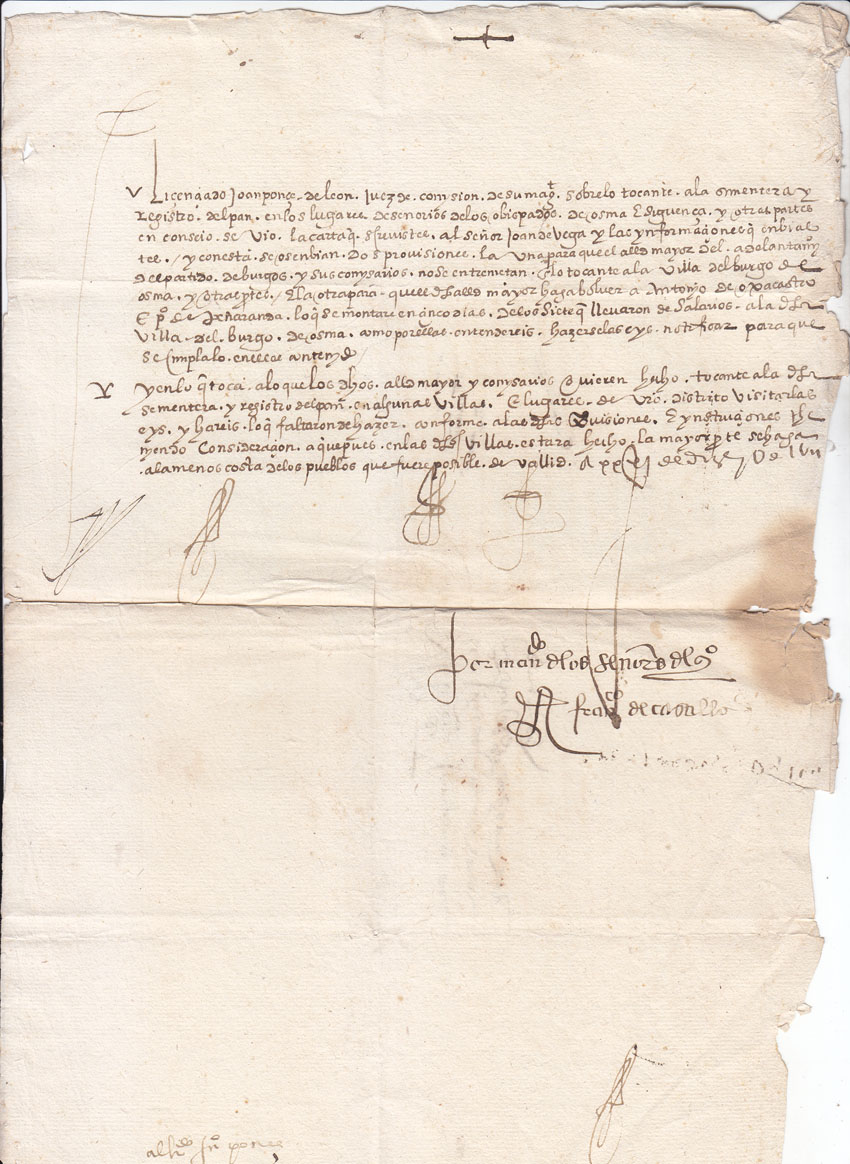 V Licenciado Joan ponçe. de leon. Juez de. comision. de su mag.t sobre lo tocante. a la sementera y
Registro. del pan. en los lugares de señorios de los obispados. de osma E siguença. y otras partes
en conseio. se vio. la carta q. screvistes. al señor Joan de Vega y las ynformaçiones q enbias
tes. / y con esta. se os enbian. Dos provisiones. la Una para que el alld mayor del. adelantamy.º
del partido. de burgos. y sus comysarios. no se entremetan. E lo tocante a la Villa del burgo de
osma. y otras ptes. / E la otra para. que el dho alld mayor haga bolver a Antonio de oxacastro
E p.º de peñaranda. lo q se montare en cinco dias. de los siete q llevaron de salarios. a la dha
Villa. del. burgo. de osma. como por ellas. entendereis. hazerselas eys. notificar para que
se cumpla lo. en ellas contenydo /
Y en lo q toca. a lo que los dhos. alld mayor y comysarios ovieren hecho. tocante a la dha
sementera. y registro del pan. en algunas Villas. E lugares. de vro. distrito Visitarlas
eys. y hareis. lo q faltaron de hazer. conforme a las dhas provisiones. E ynstruçiones the
nyendo Consideraçion. a que pues. en las dhas Villas. estara hecho. la mayor pte se haga
a la menos costa de los pueblos que fuere posible. de Vallid. A xxvj de
por man.do de los señores del q.º
fran.co de castillo
al liz.do ju.º ponce